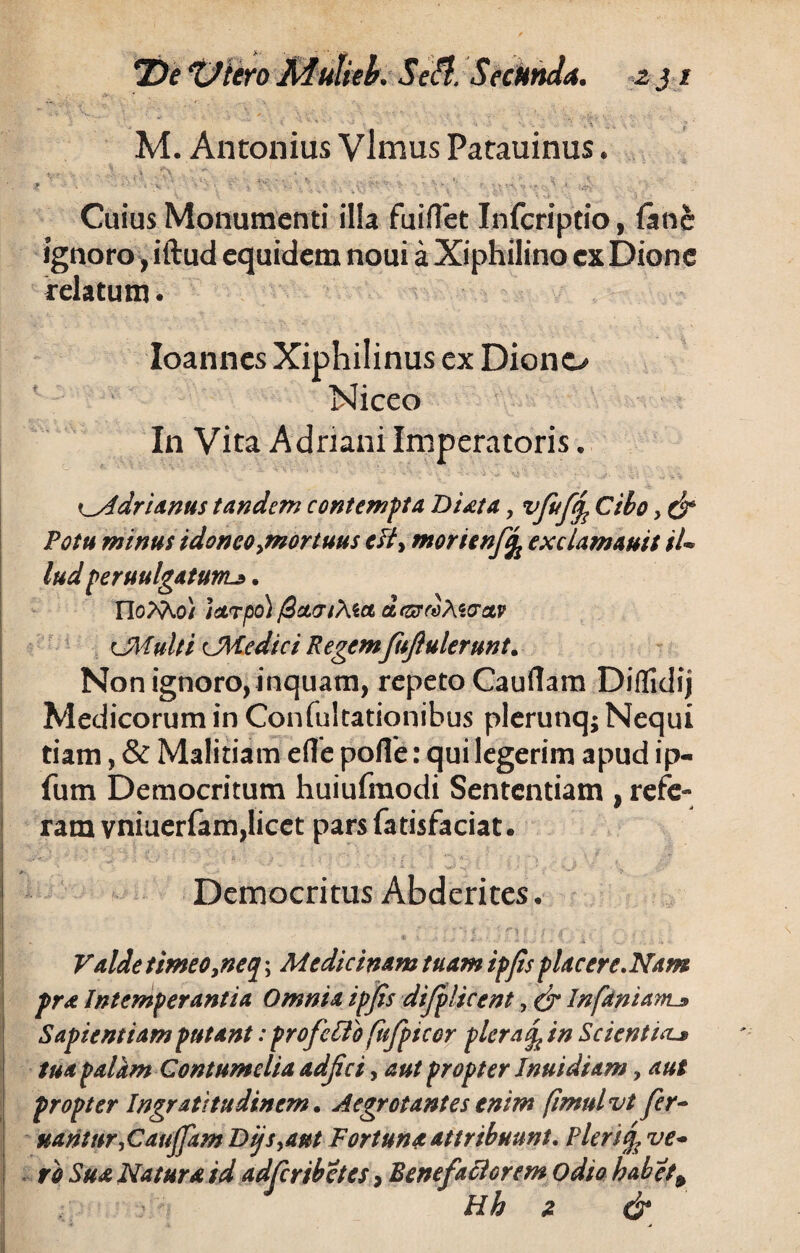 De Vtero Mulieb. Sect. Secunda. 231
M. Antonius Vlmus Patauinus.
Cuius Monumenti illa fuiſſet Inſcriptio, ſanè
ignoro, iſtud equidem noui à Xiphilino ex Dione
relatum.
Ioannes Xiphilinus ex Dione
Niceo
In Vita Adriani Imperatoris.
Adrianus tandem contempta Diæta, vſuſq; Cibo, &
Potu minus idoneo, mortuus eſt, morienſq; exclamauit il-
lud peruulgatum.
Πολλοὶ ἰατροὶ βασιλέα ἀπώλεσαν
Multi Medici Regem ſuſtulerunt.
Non ignoro, inquam, repeto Cauſſam Diſſidij
Medicorum in Conſultationibus plerunq; Nequi
tiam, & Malitiam eſſe poſſe: qui legerim apud ip-
ſum Democritum huiuſmodi Sententiam, refe-
ram vniuerſam, licet pars ſatisfaciat.
Democritus Abderites.
Valde timeo, neq; Medicinam tuam ipſis placere. Nam
præ Intemperantia Omnia ipſis diſplicent, & Inſaniam
Sapientiam putant: profectò ſuſpicor pleraq; in Scientia
tua palàm Contumelia adfici, aut propter Inuidiam, aut
propter Ingratitudinem. Aegrotantes enim ſimul vt ſer-
uantur, Cauſſam Dijs, aut Fortunæ attribuunt. Pleriq; ve-
rò Suæ Naturæ id adſcribẽtes, Benefactorem Odio habẽt,
Hh 2 &